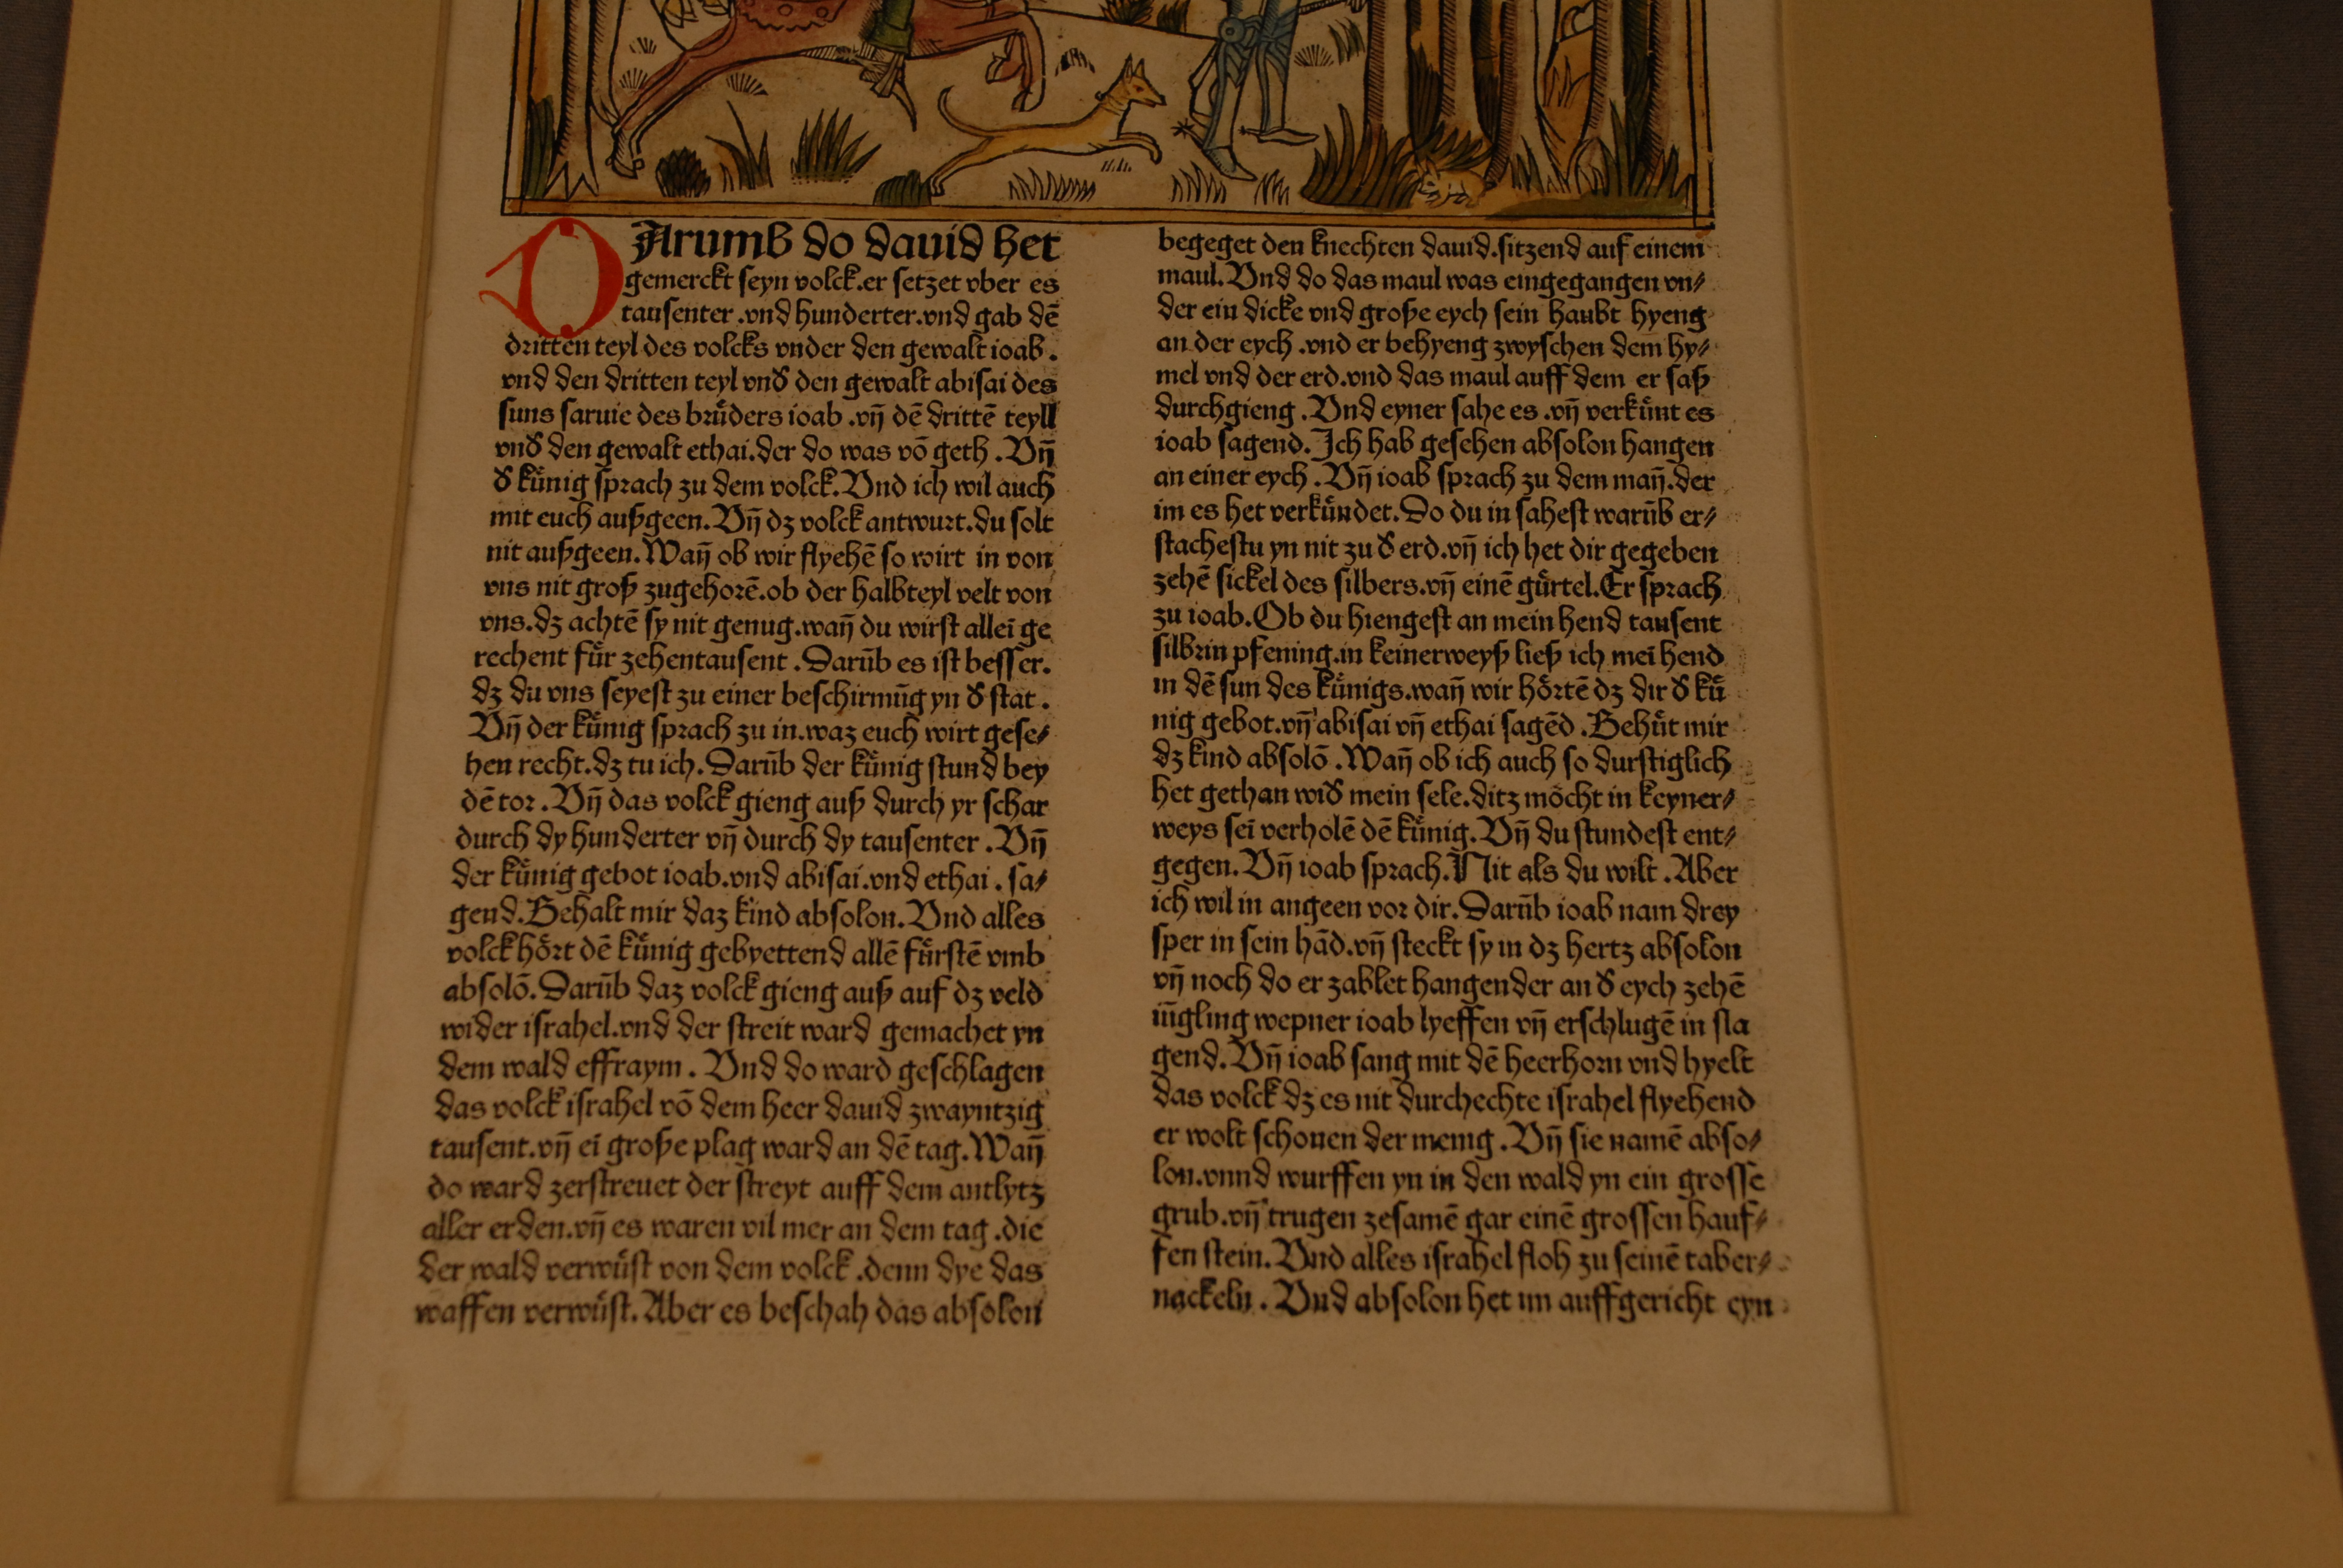 DArumb do dauid het
gemerckt seyn volck.er setzet vber es
tausenter.vnd hunderter.vnd gab dē
dritten teyl des volcks vnder den gewalt ioab.
vnd den dritten teyl vnđ den gewalt abisai des
suns saruie des brůders ioab.vñ dē drittē teyll
vnđ den gewalt ethai.der do was vō geth. Vñ
đ kůnig sprach zu dem volck.Vnd ich wil auch
mit euch außgeen.Vñ dz volck antwurt.du solt
nit außgeen.Wañ ob wir flyehē so wirt in von
vns nit groß zugehorē.ob der halbteyl velt von
vns.dz achtē sy nit genug.wañ du wirst alleī ge
rechent fůr zehentausent. Darūb es ist besser.
dz du vns seyest zu einer beschirmūg yn đ stat.
Vñ der kůnig sprach zu in.waz euch wirt gese⸗
hen recht.dz tu ich.Darūb der kůnig stund bey
dē tor. Vñ das volck gieng auß durch yr schar
durch dy hunderter vñ durch dy tausenter. Vñ
der kůnig gebot ioab.vnd abisai.vnd ethai. sa⸗
gend.Behalt mir daz kind absolon. Vnd alles
volck hőrt dē kůnig gebyettend allē fůrstē vmb
absolō.Darūb daz volck gieng auß auf dz veld
wider israhel.vnd der streit ward gemachet yn
dem wald effraym. Vnd do ward geschlagen
das volck israhel vō dem heer dauid zwayntzig
tausent.vñ eī große plag ward an dē tag.Wañ
do ward zerstreuet der streyt auff dem antlytz
aller erden.vñ es waren vil mer an dem tag.die
der wald verwůst von dem volck.denn dye das
waffen verwůst.Aber es beschah das absolon
begeget den knechten dauid.sitzend auf einem
maul.Vnd do das maul was eingegangen vn⸗
der ein dicke vnd große eych sein haubt hyeng
an der eych.vnd er behyeng zwyschen dem hy⸗
mel vnd der erd.vnd das maul auff dem er saß
durchgieng. Vnd eyner sahe es.vñ verkůnt es
ioab sagend.Ich hab gesehen absolon hangen
an einer eych. Vñ ioab sprach zu dem mañ.der
im es het verkůndet.Do du in sahest warūb er⸗
stachestu yn nit zu đ erd.vñ ich het dir gegeben
zehē sickel des silbers.vñ einē gůrtel.Er sprach
zu ioab.Ob du hiengest an mein hend tausent
silbrin pfening.in keinerweyß ließ ich meī hend
in dē sun des kůnigs.wañ wir hőrtē dz dir đ ků
nig gebot.vñ abisai vñ ethai sagēd. Behůt mir
dz kind absolō. Wañ ob ich auch so durstiglich
het gethan wiđ mein sele.ditz mőcht in keyner⸗
weys seī verholē dē kůnig.Vñ du stundest ent⸗
gegen.Vñ ioab sprach.Nit als du wilt. Aber
ich wil in angeen vor dir.Darūb ioab nam drey
sper in sein hād.vñ steckt sy in dz hertz absolon
vñ noch do er zablet hangender an đ eych zehē
iūgling wepner ioab lyeffen vñ erschlugē in sla
gend.Vñ ioab sang mit dē heerhorn vnd hyelt
das volck dz es nit durchechte israhel flyehend
er wolt schonen der menig. Vñ sie namē abso⸗
lon.vnnd wurffen yn in den wald yn ein grosse
grub.vñ trugen zesamē gar einē grossen hauf⸗
fen stein. Vnd alles israhel floh zu seinē taber⸗
nackeln. Vnd absolon het im auffgericht eyn